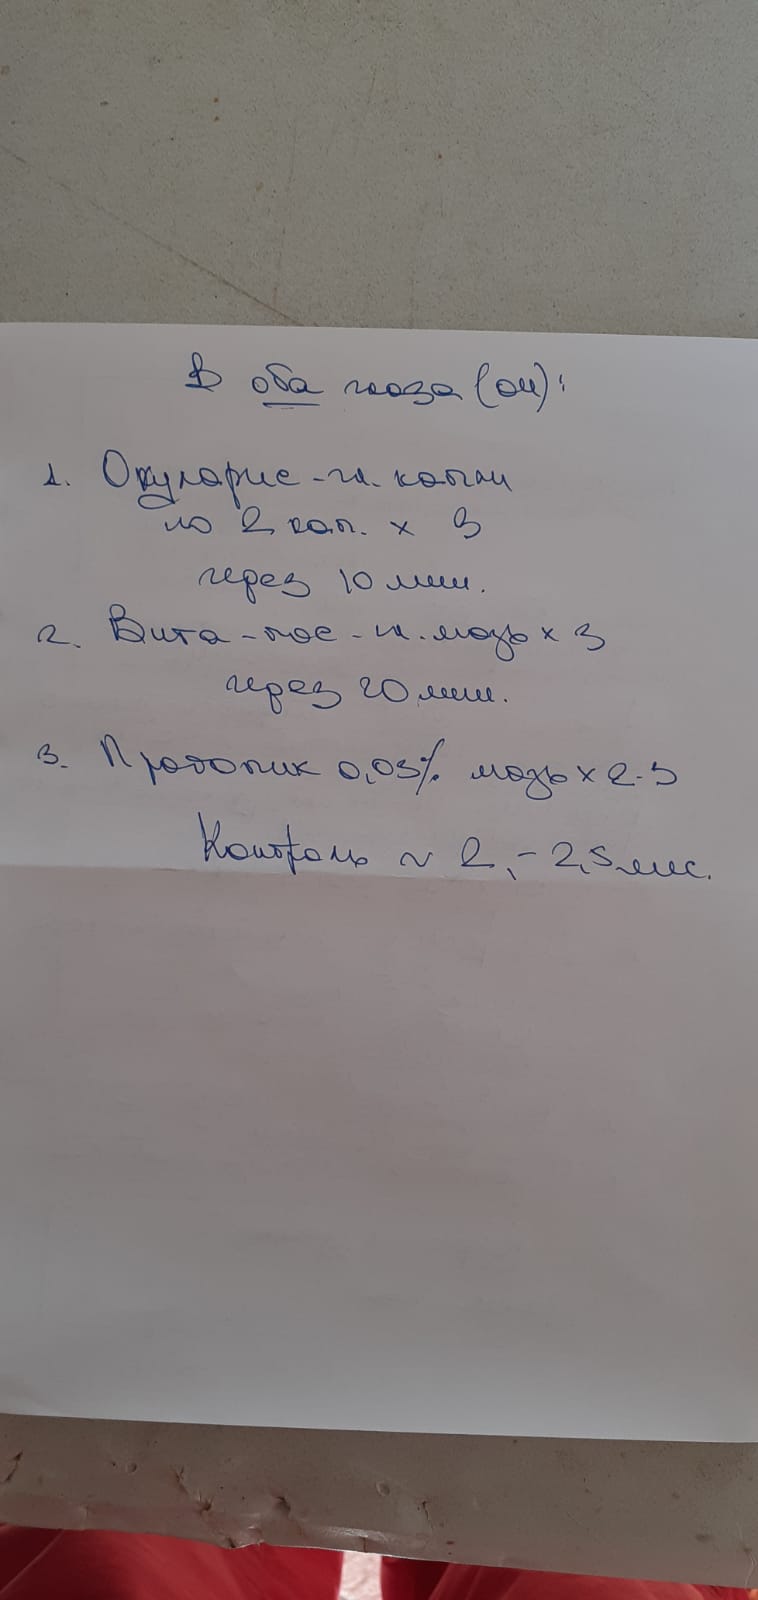 В оба глаза (ои):
1. Окулярис - гл. капли
по 2 кап. x 3
через 10 мин.
2. Вита - пос - гл. мазь x 3
через 20 мин.
3. Протопик 0,03% мазь x 2-3
Контроль ~ 2, - 2,5 мес.